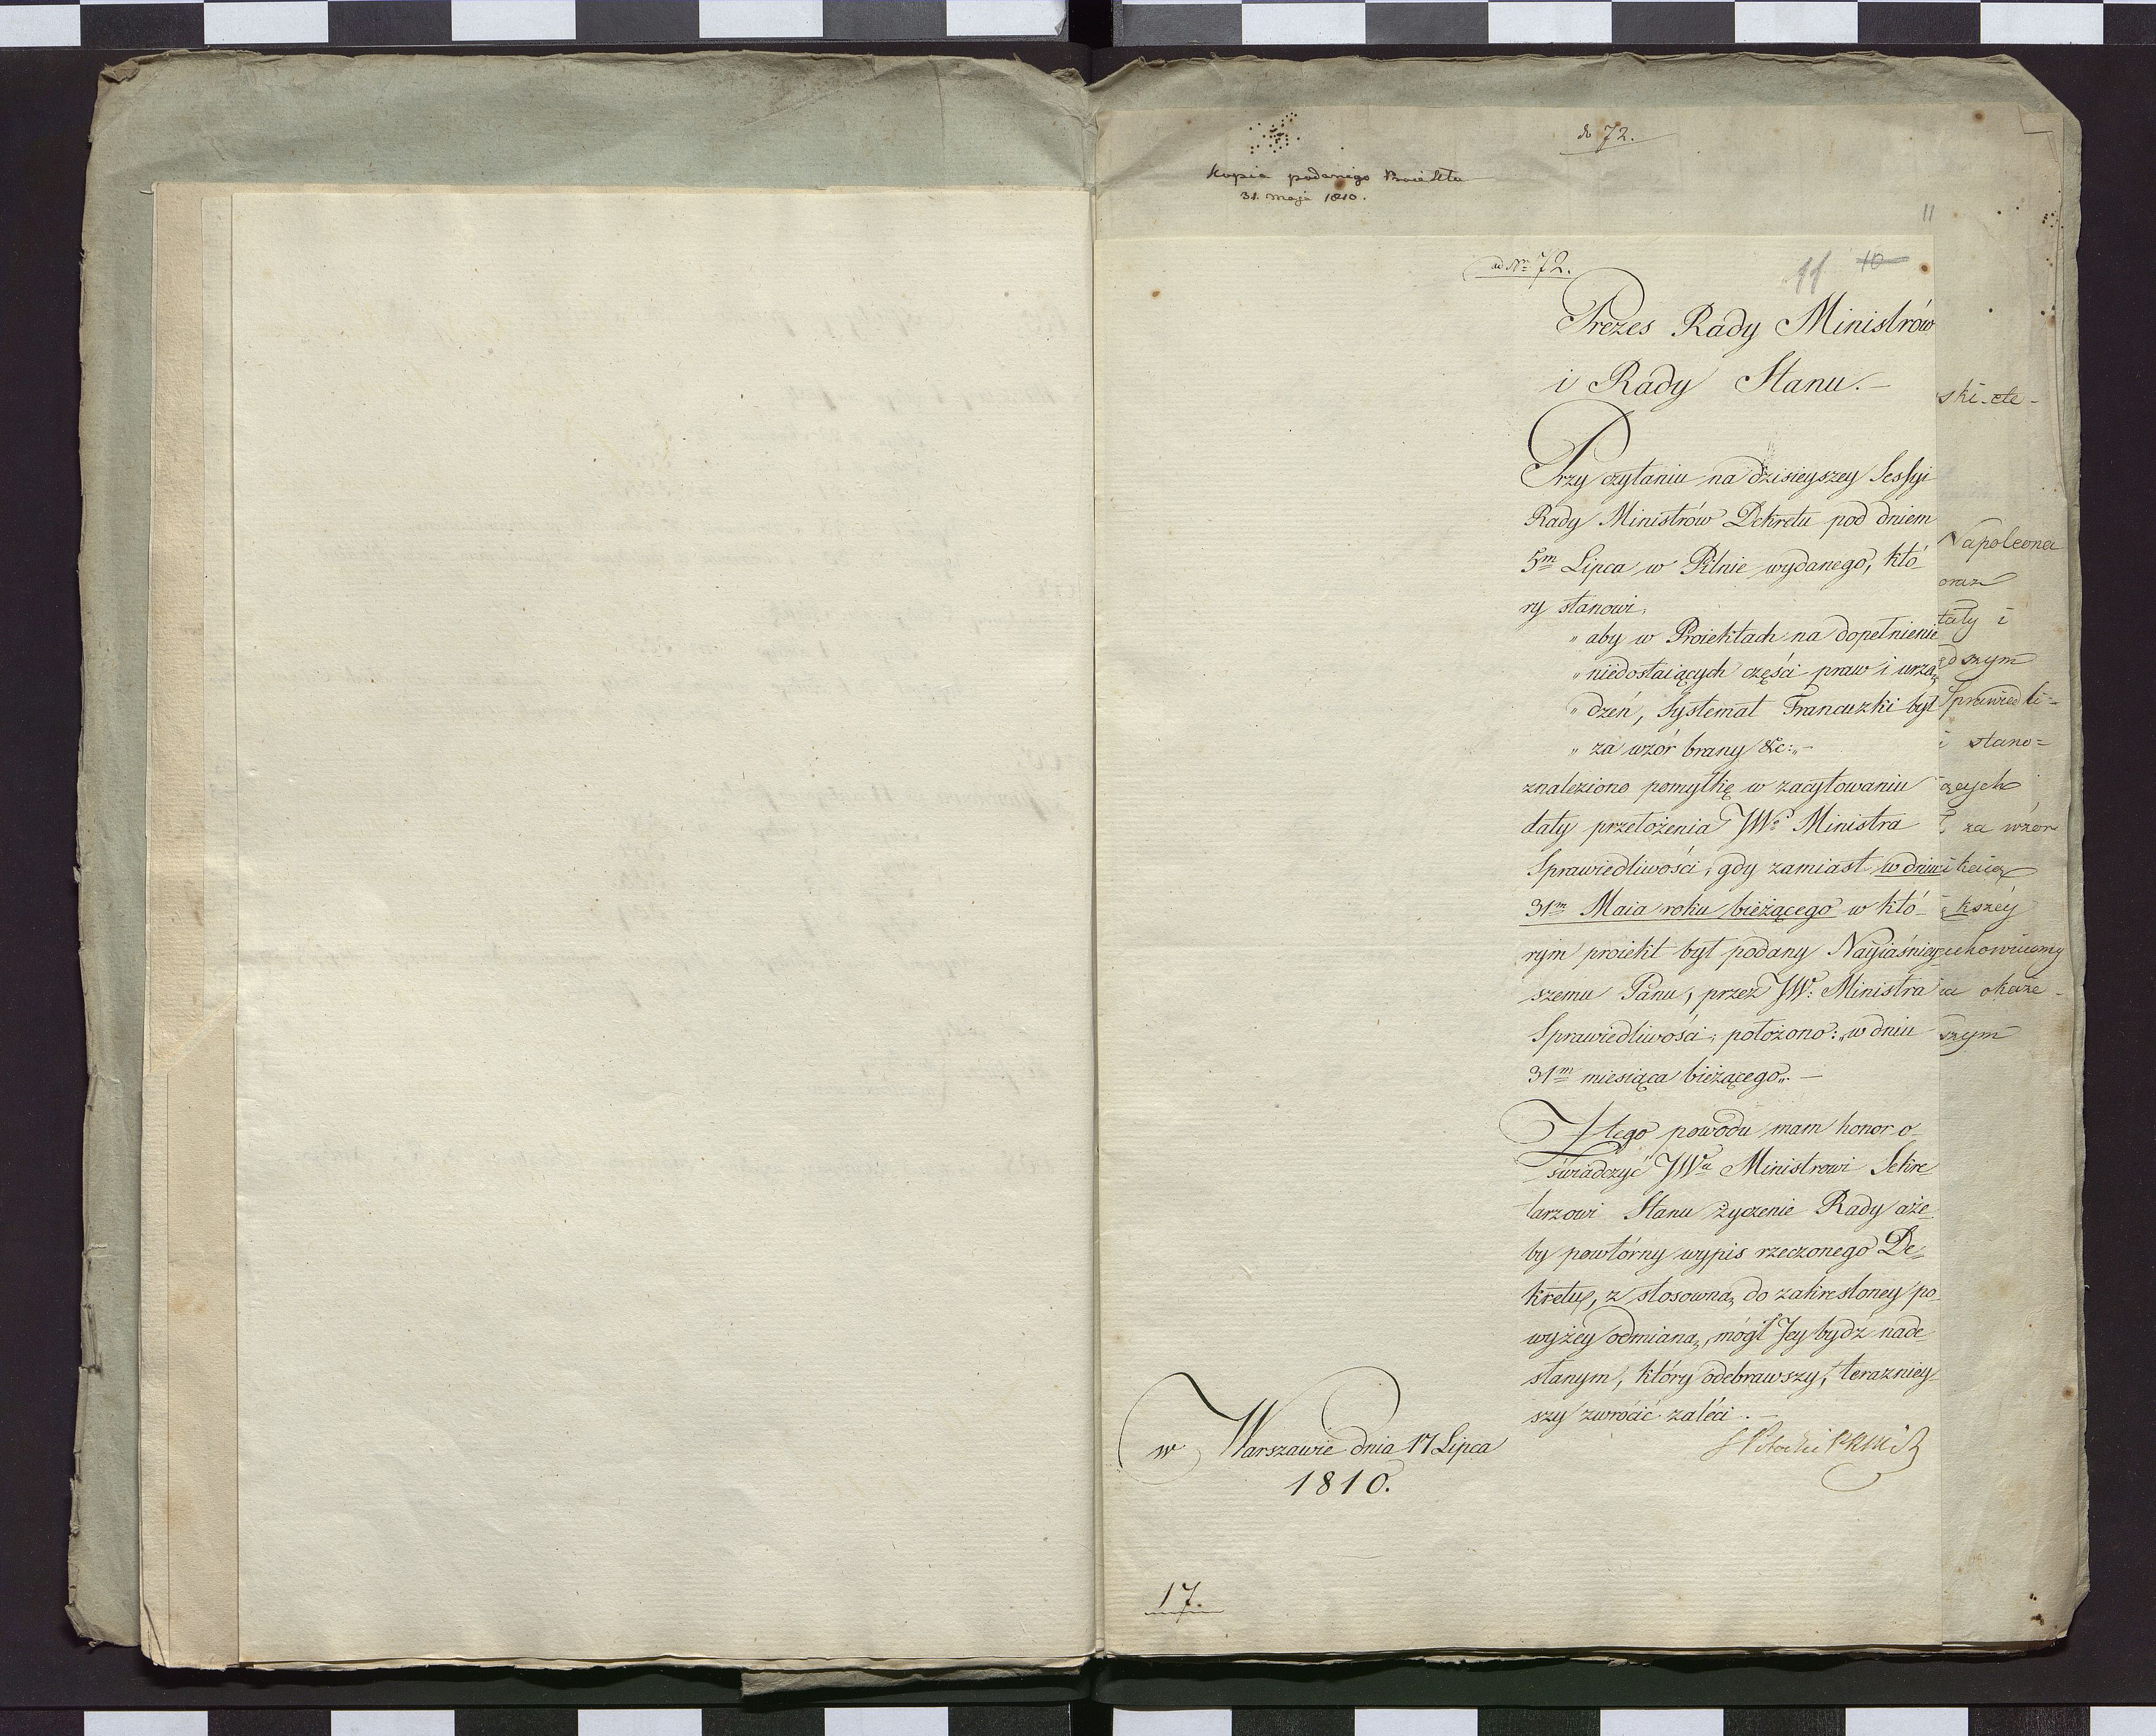 do 72.
Kopia podanego Proiektu
31. maja 1810.
11
ad Nrm 72.
11 10
Prezes Rady Ministrów
i Rady Stanu.-
Przy czytaniu na dzisieyszey Sessyi
Rady Ministrów Dekretu pod dniem
5m Lipca w Pilnie wydanego, któ
ry stanowi,
„ aby w Proiektach na dopełnienie
„ niedostaiących części praw i urzą
„ dzeń, Systemat Francuzki był
„ za wzór brany &c:„-
znaleziono pomyłkę w zacytowaniu
daty przełożenia JWo Ministra
Sprawiedliwości, gdy zamiast w dniu
31m Maia roku bieżącego w któ-
rym proiekt był podany Nayiaśniey
szemu Panu, przez JW: Ministra
Sprawiedliwości; położono: „w dniu
31m miesiąca bieżącego„.-
Z tego powodu mam honor o
świadczyć JWu Ministrowi Sekre
tarzowi Stanu życzenie Rady aże
by powtórny wypis rzeczonego De-
kretu, z stosowną do zakreśloney po
wyżey odmianą, mógł Jey bydź nade
słanym, który odebrawszy, teraznie­y
szy zwrócić zaleci.-
w Warszawie dnia 17 Lipca
1810.
17.
ski. etc-
Napoleona
oraz
taty i
Sprawiedli=
i stano=
ących
za wzór
kszéy
uchowuiemy
okaże-
szym